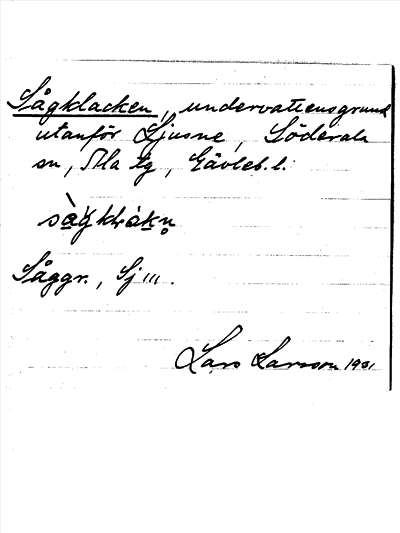 Sågklacken, undervattensgrund
utanför Ljusne, Söderala
sn, Ala tg, Gävleb. l.
Såggr., Sj 111.
Lars Larsson 1931